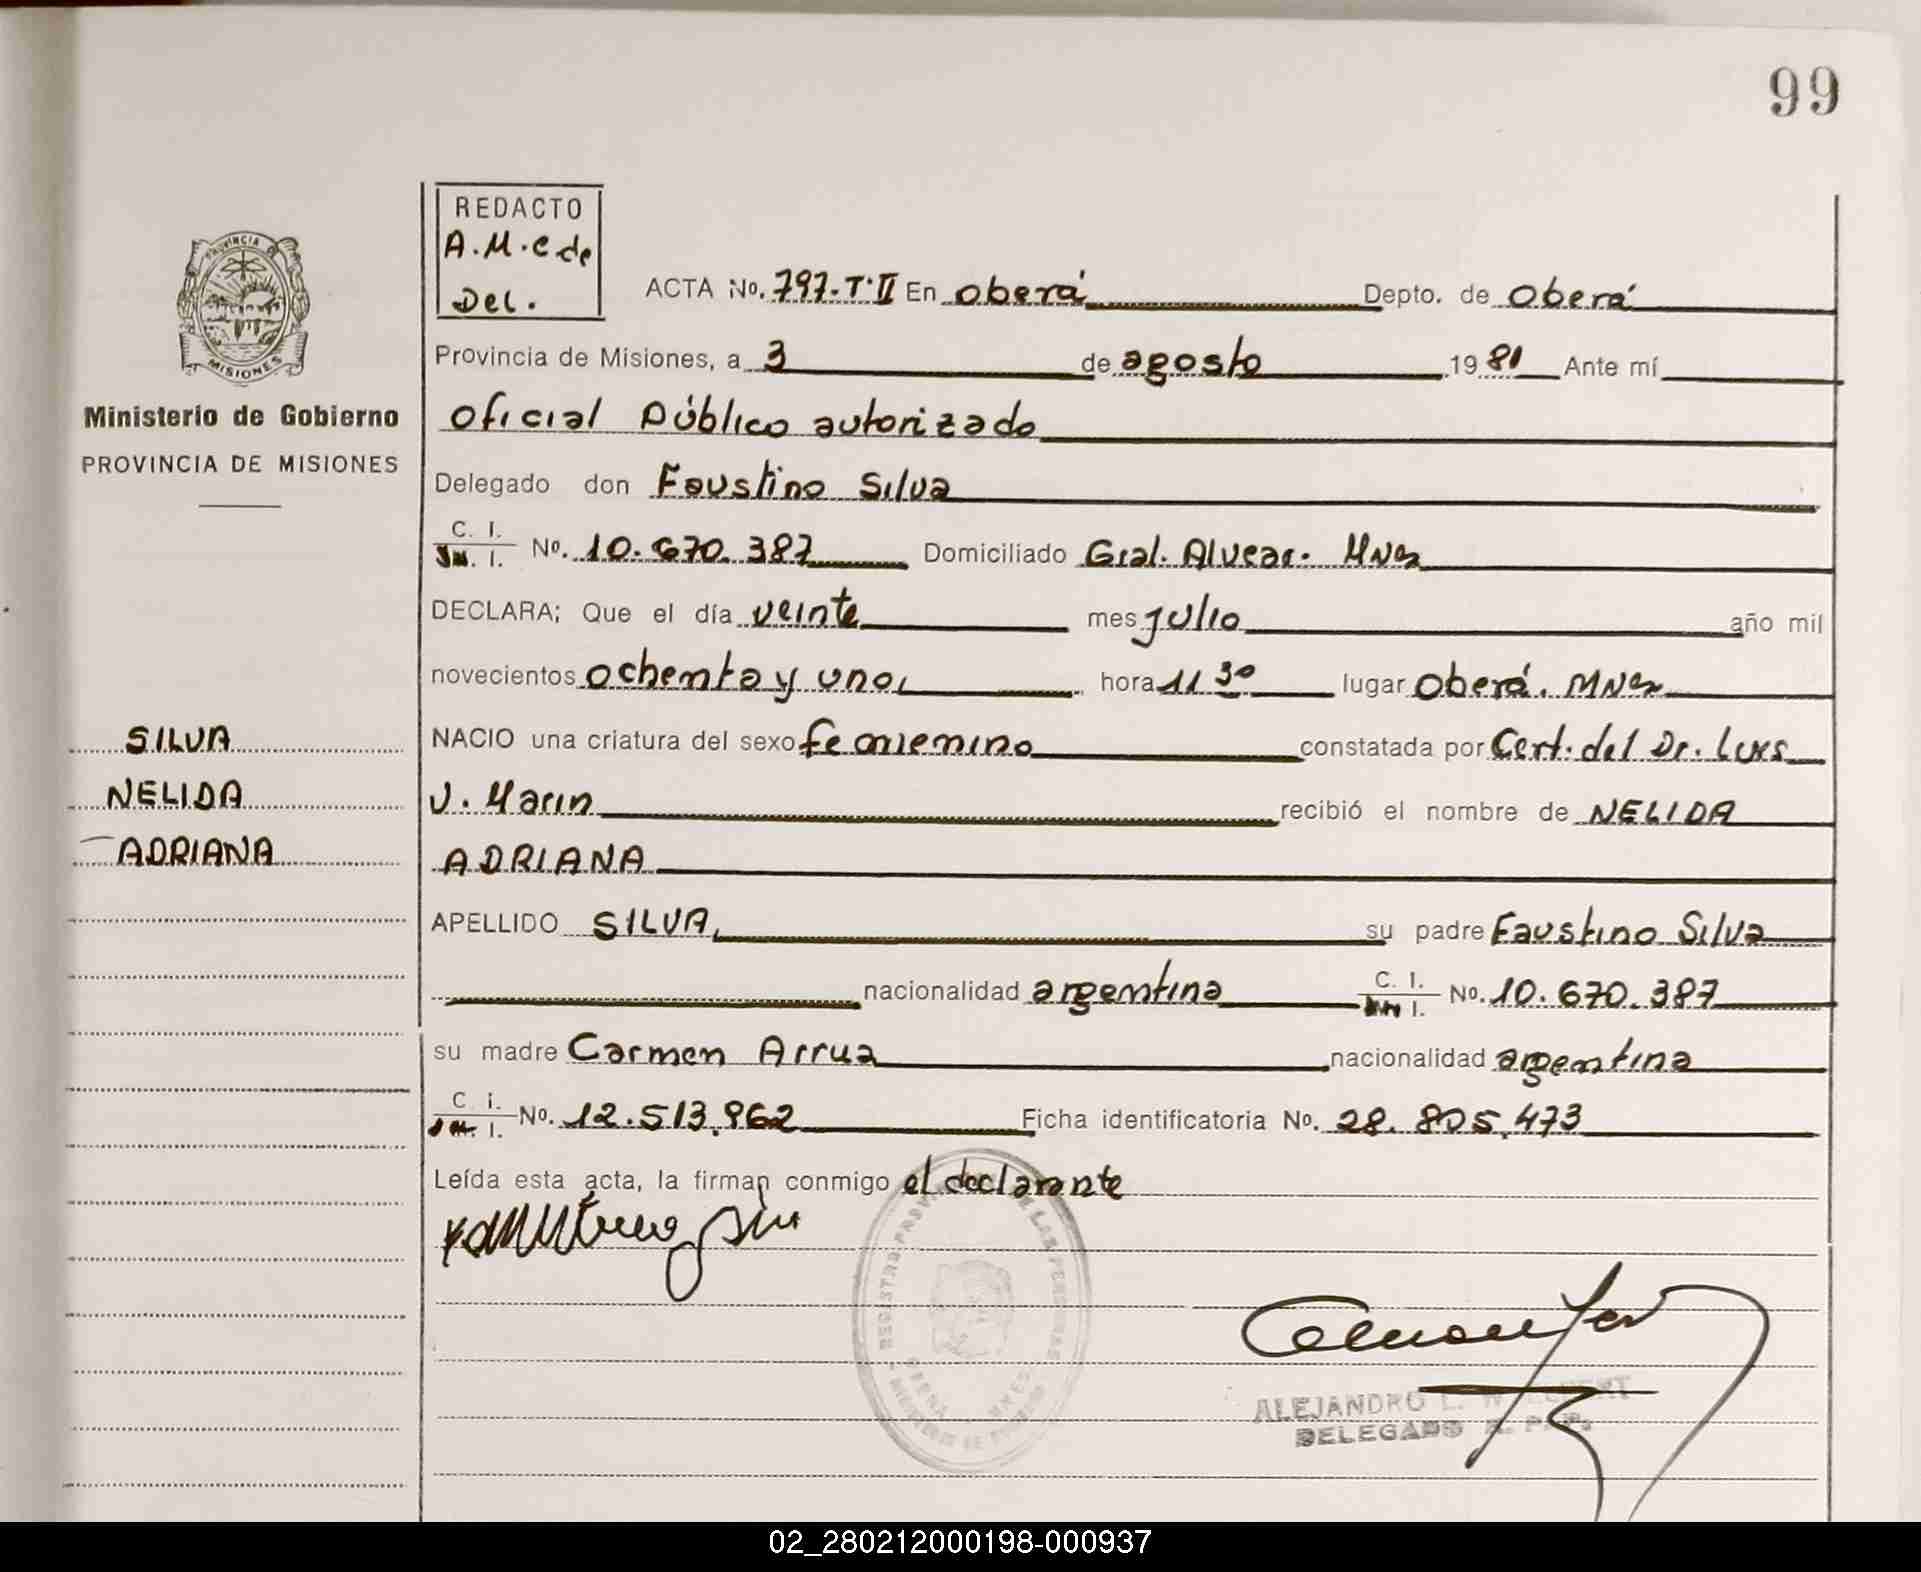 99
REDACTO
A.M.C de
Del.
ACTA No. 797-T·II En Oberá Depto. de Oberá
PROVINCIA
MISIONES
Ministerio de Gobierno
PROVINCIA DE MISIONES
Provincia de Misiones, a 3 de agosto 1981 Ante mí
Oficial Público autorizado
Delegado don Faustino Silva
C. I.
I. No. 10.670.387 Domiciliado Gral. Alvear. Mnes
DECLARA; Que el día veinte mes julio año mil
novecientos ochenta y uno, hora 11 30 lugar Oberá. Mnes
SILVA
NACIO una criatura del sexo femenino constatada por Cert. del Dr. Luis
NELIDA
J. Marin recibió el nombre de NELIDA
ADRIANA
ADRIANA
APELLIDO SILVA, su padre Faustino Silva
nacionalidad argentina C. I.
I. No. 10.670.387
su madre Carmen Arrua nacionalidad argentina
C. i.
I. No. 12.513.962 Ficha identificatoria No. 28.805.473
Leída esta acta, la firman conmigo el declarante
ALEJANDRO L.
DELEGADO
02_280212000198-000937